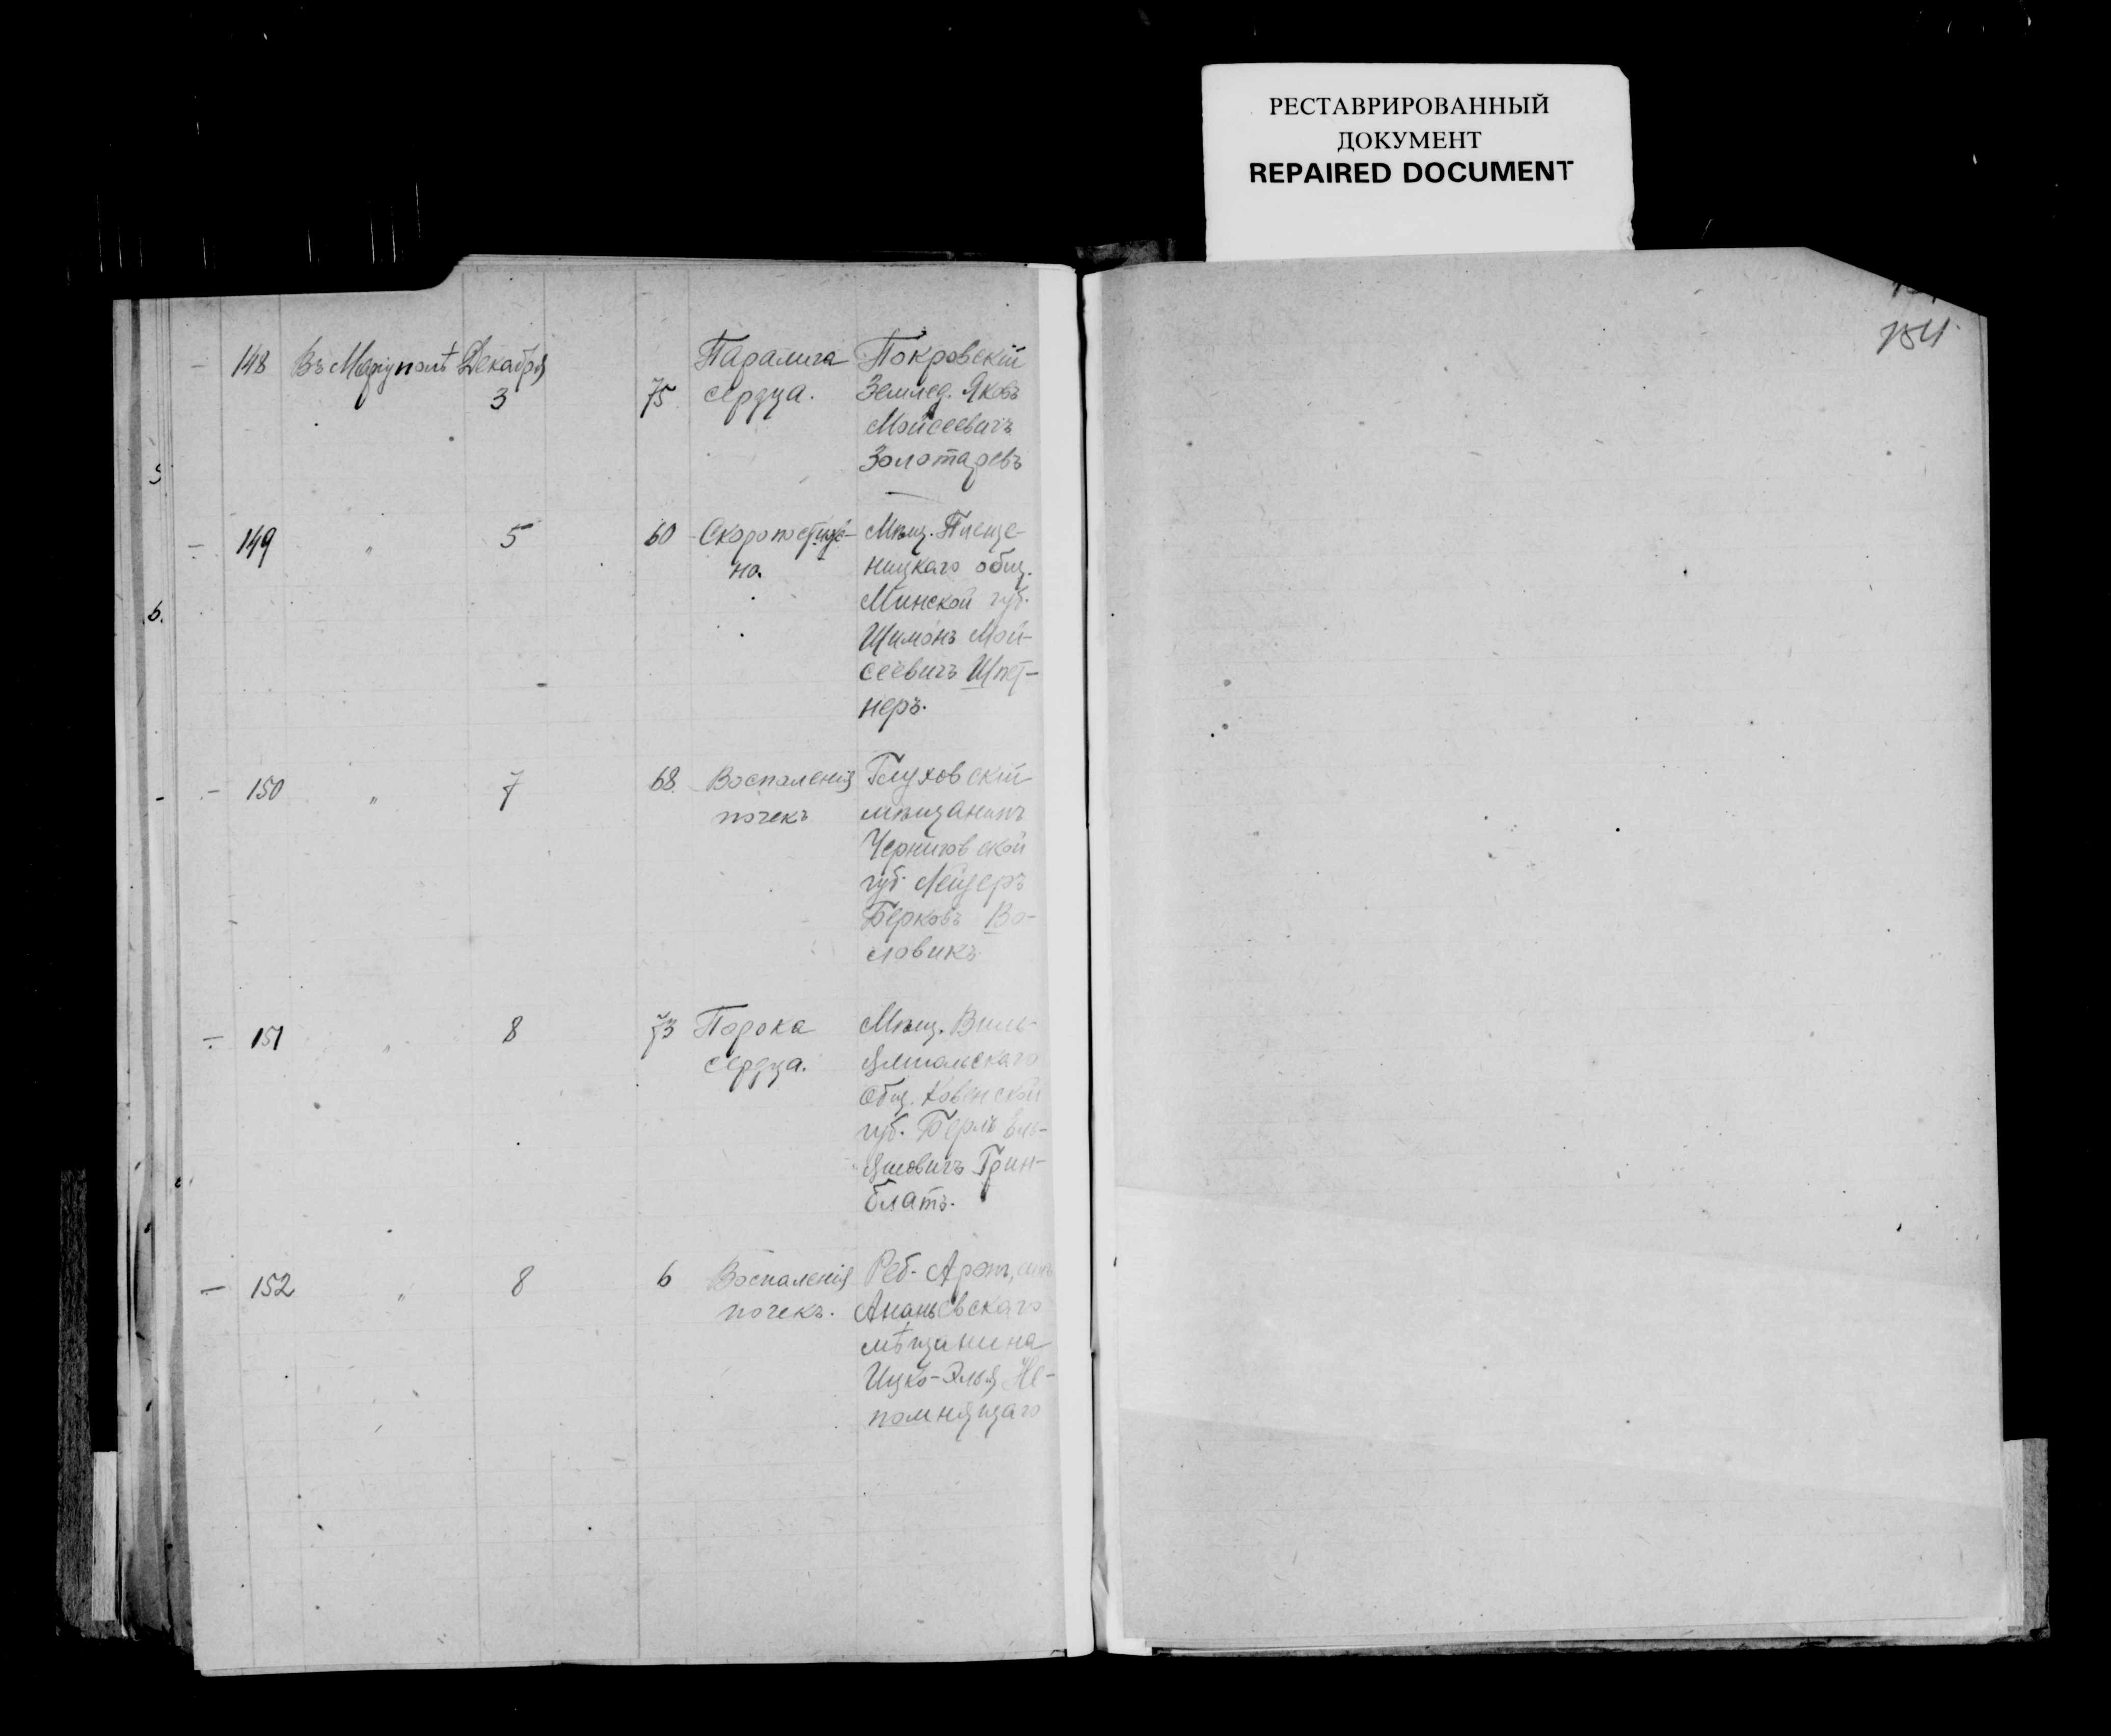 РЕСТАВРИРОВАННЫЙ
ДОКУМЕНТ
REPAIRED DOCUMENT
154
148 Въ Маріуполѣ Декабря Паралича Покровскій
3 75 сердца. Землед. Яковъ
Мойсеевичъ
Золотаревъ
149 " 5 60 Скоропостиж- Мѣщ.
но. ницкаго общ.
Минской губ.
Шимонъ Мой-
сеевичъ Шпет-
неръ.
150 " 7 68 Воспаленія Глуховскій
почекъ мѣщанинъ
Черниговской
губ. Лейзеръ
Берковъ Во-
ловикъ
151 " 8 73 Порока Мѣщ. Виль-
сердца.
общ. Ковенской
губ. Берль
Грин-
блатъ.
152 " 8 6 Воспаленія Реб. сынъ
почекъ. Ананьевскаго
мѣщанина
Ицко-Элья Не-
помнящаго